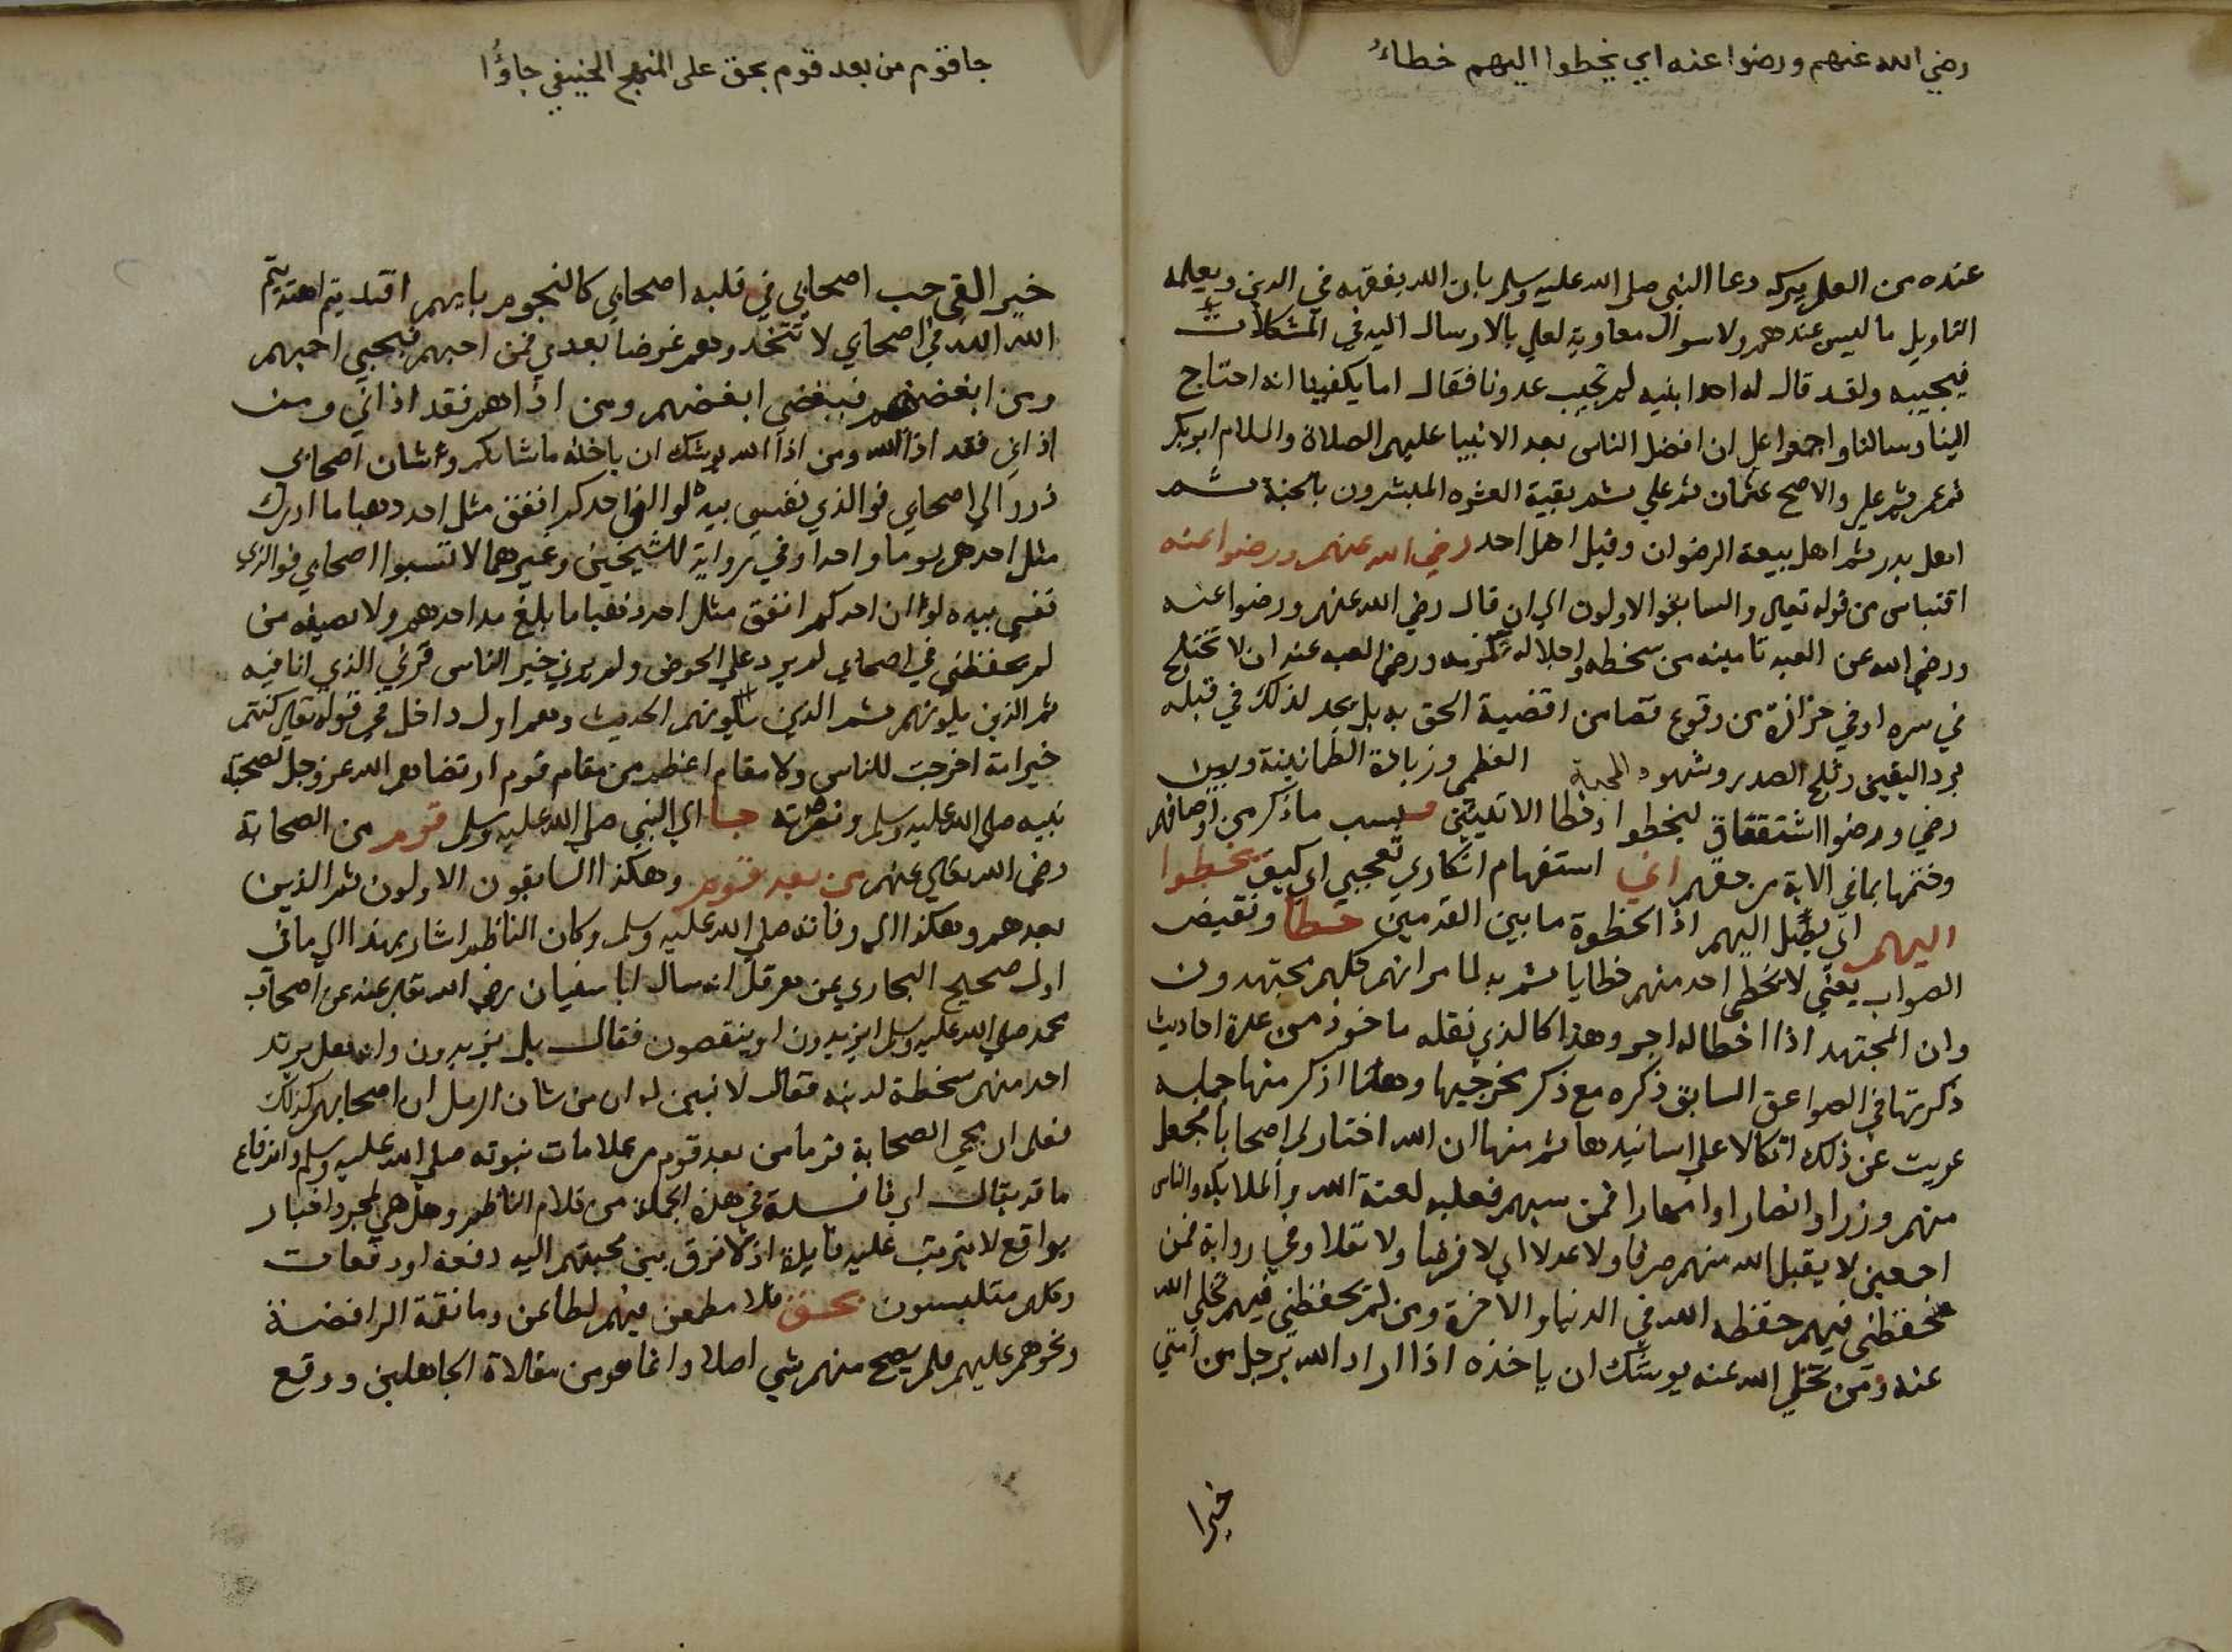 رضي الله عنهم ورضوا عنه اني يخطوا اليهم خطاءُ
عنده من العلم ببركة دعا النبي صلى الله عليه وسلم بان الله يفقهه في الدين ويعلمه
التاويل ما ليس عندهم ولا سوال معاوية لعلي بالارسال اليه في المشكلات
فيجيبه ولقد قال له احد ابنيه لم تجيب عدونا فقال اما يكفينا انه احتاج
الينا وسالنا واجمعوا على ان افضل الناس بعد الانبيا عليهم الصلاة والسلام ابو بكر
ثم عمر ثم علي والاصح عثمان ثم علي ثم بقية العشره المبشرون بالجنة ثم
اهل بدر ثم اهل بيعة الرضوان وقيل اهل احد رضي الله عنهم ورضوا عنه
اقتباس من قوله تعالى والسابقوا الاولون الى ان قال رضي الله عنهم ورضوا عنه
ورضي الله عن العبد تامينه من سخطه واجلاله وتكرمه ورضى العبد عنه ان لا تختلج
في سره اوفي حزازة من وقوع قضا من اقضية الحق به بل يجد لذلك في قبله
برد اليقين وثلج الصدر وشهود المحبة العظمى وزيادة الطمانينة وبين
رضي ورضوا اشتقاق ليخطوا وخطا الاتيتين بسبب ما ذكر من اوصافهم
وختمها بما في الاية من حقهم اني استفهام انكاري تعجبي اي كيف يخطوا
اليهم اي يصل اليهم اذ الخطوة ما بين القدمين خطا ونقيض
الصواب يعني لا يخطى احد منهم خطايا ثم به لما مر انهم كلهم مجتهدون
وان المجتهد اذا اخطا له اجر وهذا كالذي نقله ماخوذ من عدة احاديث
ذكرتها في الصواعق السابق ذكره مع ذكر مخرجيها وهنا اذكر منها جملة
عريت عن ذلك اتكالا على اسانيدها ثم منها ان الله اختار لي اصحابا فجعل
منهم وزرا وانصارا واصهارا فمن سبهم فعليه لعنة الله والملايكه والناس
اجمعين لا يقبل الله منهم صرفا ولا عدلا اي لا فرضا ولا نفلا وفي رواية فمن
حفظني فيهم حفظه الله في الدنيا والاخرة ومن لم يحفظني فيهم تخلى الله
عنه ومن تخلى الله عنه يوشك ان ياخذه اذا اراد الله برجل من امتي
خيرا
جا قوم من بعد قوم بحق على المنهج الحنيفي جاؤُا
خير القى حب اصحابي في قلبه اصحابي كالنجوم بايهم اقتديتم اهتديتم
الله الله في اصحابي لا تتخذوهم غرضا بعدي فمن احبهم فبحبي احبهم
ومن ابغضهم فببغضي ابغضهم ومن اذاهم فقد اذاني ومن
اذاني فقد اذا الله ومن اذا الله يوشك ان ياخذه ما شانكم وشان اصحابي
ذروا لي اصحابي فوالذي نفسي بيده لو ان احدكم انفق مثل احد ذهبا ما ادرك
مثل احدهم يوما واحدا وفي رواية للشيخين وغيرهما لا تسبوا اصحابي فوالذي
نفسي بيده لو ان احدكم انفق مثل احد ذهبا ما بلغ مد احدهم ولا نصيفه من
لم يحفظني في اصحابي لم يرد على الحوض ولم يرني خير الناس قرني الذي انا فيه
ثم الذين يلونهم ثم الذين يلونهم الحديث وهم اول داخل في قوله تعالى كنتم
خير امة اخرجت للناس ولا مقام اعظم من مقام قوم ارتضاهم الله عز وجل لصحبة
نبيه صلى الله عليه وسلم ونصرته جا اي النبي صلى الله عليه وسلم قوم من الصحابة
رضي الله تعالى عنهم من بعد قوم وهكذا السابقون الاولون ثم الذين
بعدهم وهكذا الى وفاته صلى الله عليه وسلم وكان الناظم اشار بهذا الى ما في
اول صحيح البخاري عن هرقل انه سال ابا سفيان رضي الله تعالى عنه عن اصحاب
محمد صلى الله عليه وسلم ايزيدون او ينقصون فقال بل يزيدون وانه هل يرتد
احد منهم سخطة لدينه فقال لا فبين له ان من شان الرسل ان اصحابهم كذلك
فعلم ان مجي الصحابة قوما من بعد قوم من علامات نبوته صلى الله عليه وسلم واندفاع
ما قد يقال اي فايدة في هذه الجملة من كلام الناظم وهل هي لمجرد اخبار
بواقع لا يترتب عليه فايدة اذ لا فرق بين محبتهم اليه دفعة او دفعات
وكلهم متلبسون بحق فلا مطعن فيهم لطاعن وما نقمة الرافضة
ونحوهم عليهم فلم يصح منهم شي اصلا وانما هو من مقالاة الجاهلين ووقيع